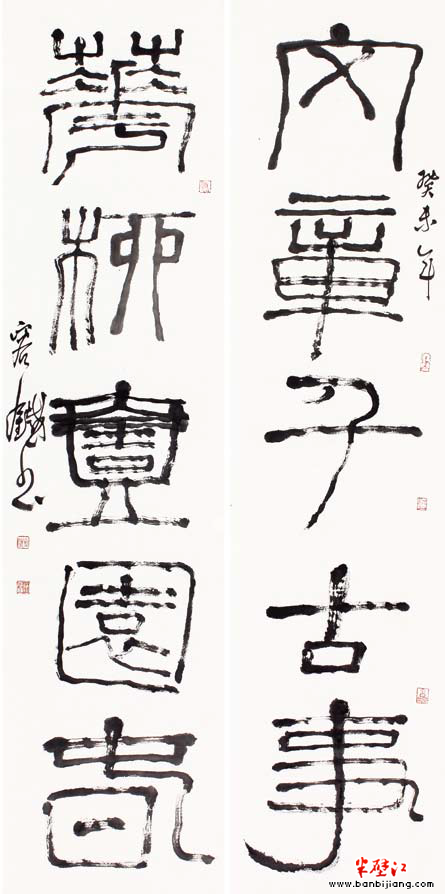 文章千古事
癸未年
華柳園春
容鐵书
半壁江
www.banbijiang.com